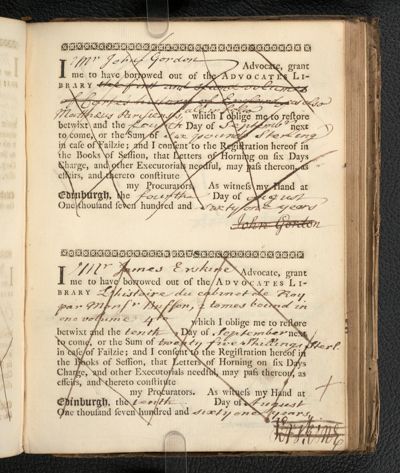 I Mr John Gordon Advocate, grant
me to have borrowed out of the ADVOCATES LI-
BRARY the first and second volumes
of
Matthæus Parisiensis, which I oblige me to restore
betwixt and the fourth Day of September next
to come, or the Sum of six pounds sterling
in case of Failzie; and I consent to the Registration hereof in
the Books of Session, that Letters of Horning on six Days
Charge, and other Executorials needful, may pass thereon, as
effeirs, and thereto constitute
my Procurators. As witness my Hand at
Edinburgh, the fourth Day of August
One thousand seven hundred and sixty one years
John Gordon
I Mr James Erskine Advocate, grant
me to have borrowed out of the ADVOCATES LI-
BRARY L'histoire du cabinet du Roy
par Monsr Buffon, tomes bound in
one volume 4to which I oblige me to restore
betwixt and the tenth Day of September next
to come, or the Sum of twenty five shillings Sterl
in case of Failzie; and I consent to the Registration hereof in
the Books of Session, that Letters of Horning on six Days
Charge, and other Executorials needful, may pass thereon, as
effeirs, and thereto constitute
my Procurators. As witness my Hand at
Edinburgh, the tenth Day of August
One thousand seven hundred and sixty one years